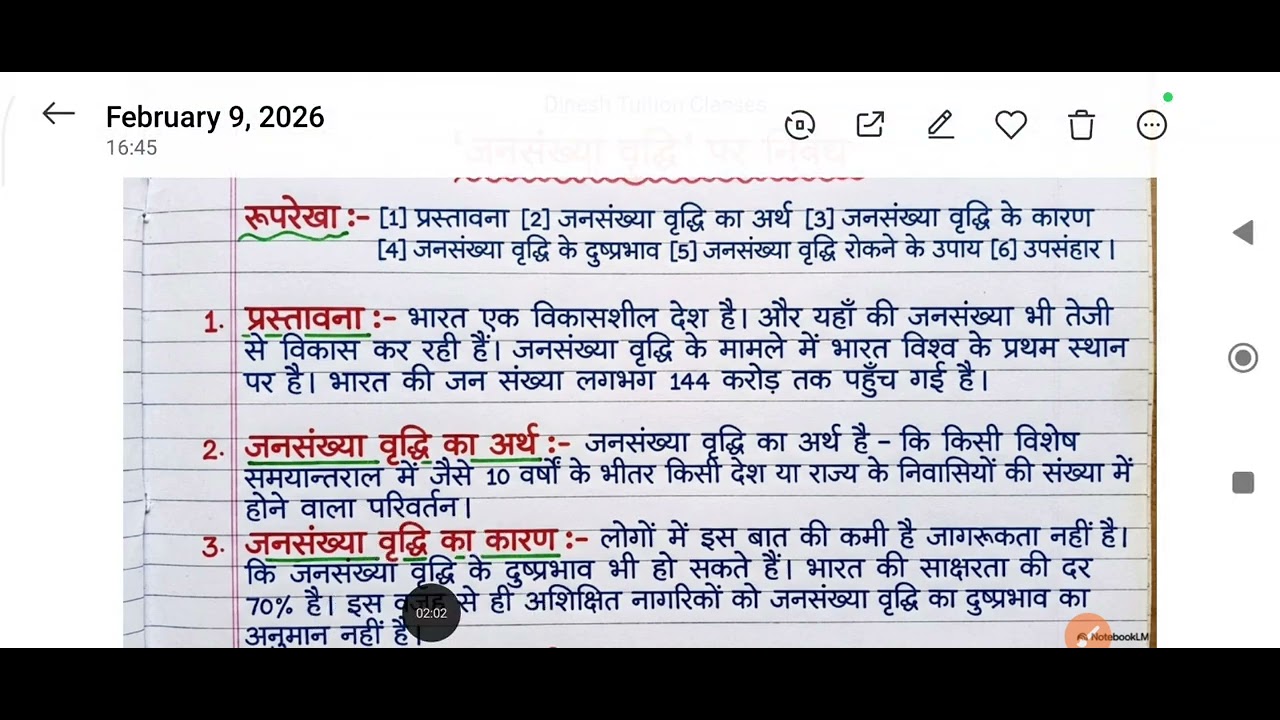 Dinesh Tuition Classes
February 9, 2026
16:45
'जनसंख्या वृद्धि' पर निबंध
रूपरेखा :- [1] प्रस्तावना [2] जनसंख्या वृद्धि का अर्थ [3] जनसंख्या वृद्धि के कारण
[4] जनसंख्या वृद्धि के दुष्प्रभाव [5] जनसंख्या वृद्धि रोकने के उपाय [6] उपसंहार।
1. प्रस्तावना :- भारत एक विकासशील देश है। और यहाँ की जनसंख्या भी तेजी
से विकास कर रही हैं। जनसंख्या वृद्धि के मामले में भारत विश्व के प्रथम स्थान
पर है। भारत की जन संख्या लगभग 144 करोड़ तक पहुँच गई है।
2. जनसंख्या वृद्धि का अर्थ :- जनसंख्या वृद्धि का अर्थ है - कि किसी विशेष
समयान्तराल में जैसे 10 वर्षों के भीतर किसी देश या राज्य के निवासियों की संख्या में
होने वाला परिवर्तन।
3. जनसंख्या वृद्धि का कारण :- लोगों में इस बात की कमी है जागरूकता नहीं है।
कि जनसंख्या वृद्धि के दुष्प्रभाव भी हो सकते हैं। भारत की साक्षरता की दर
70% है। इस से ही अशिक्षित नागरिकों को जनसंख्या वृद्धि का दुष्प्रभाव का
02:02
अनुमान नहीं है।
NotebookLM